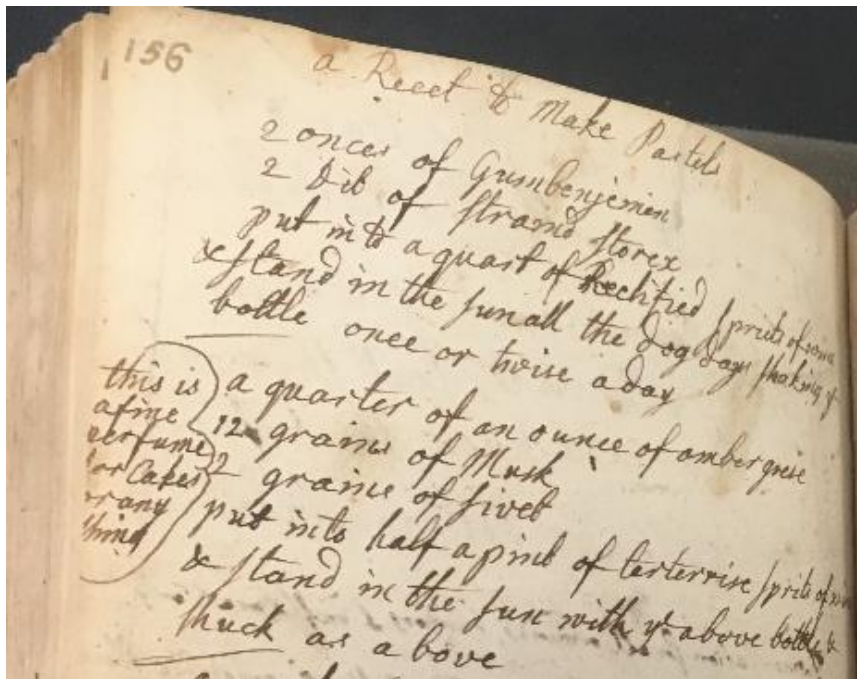 156
a Receet to Make Pastels
2 onces of Gumbenjemen
2 Dito of Stramd Storex
put into a quart of Rectified Sprits of wine
& Stand in the Sun all the dog days Shaking ye
bottle once or twise a day
this is
a fine
perfume
for Cakes
or any
thing
a quarter of an ounce of amber grese
12 grains of Musk
2 graine of Sivet
put into half a pint of terterrise Sprits of wine
& Stand in the Sun with ye above bottle &
Shuck as above